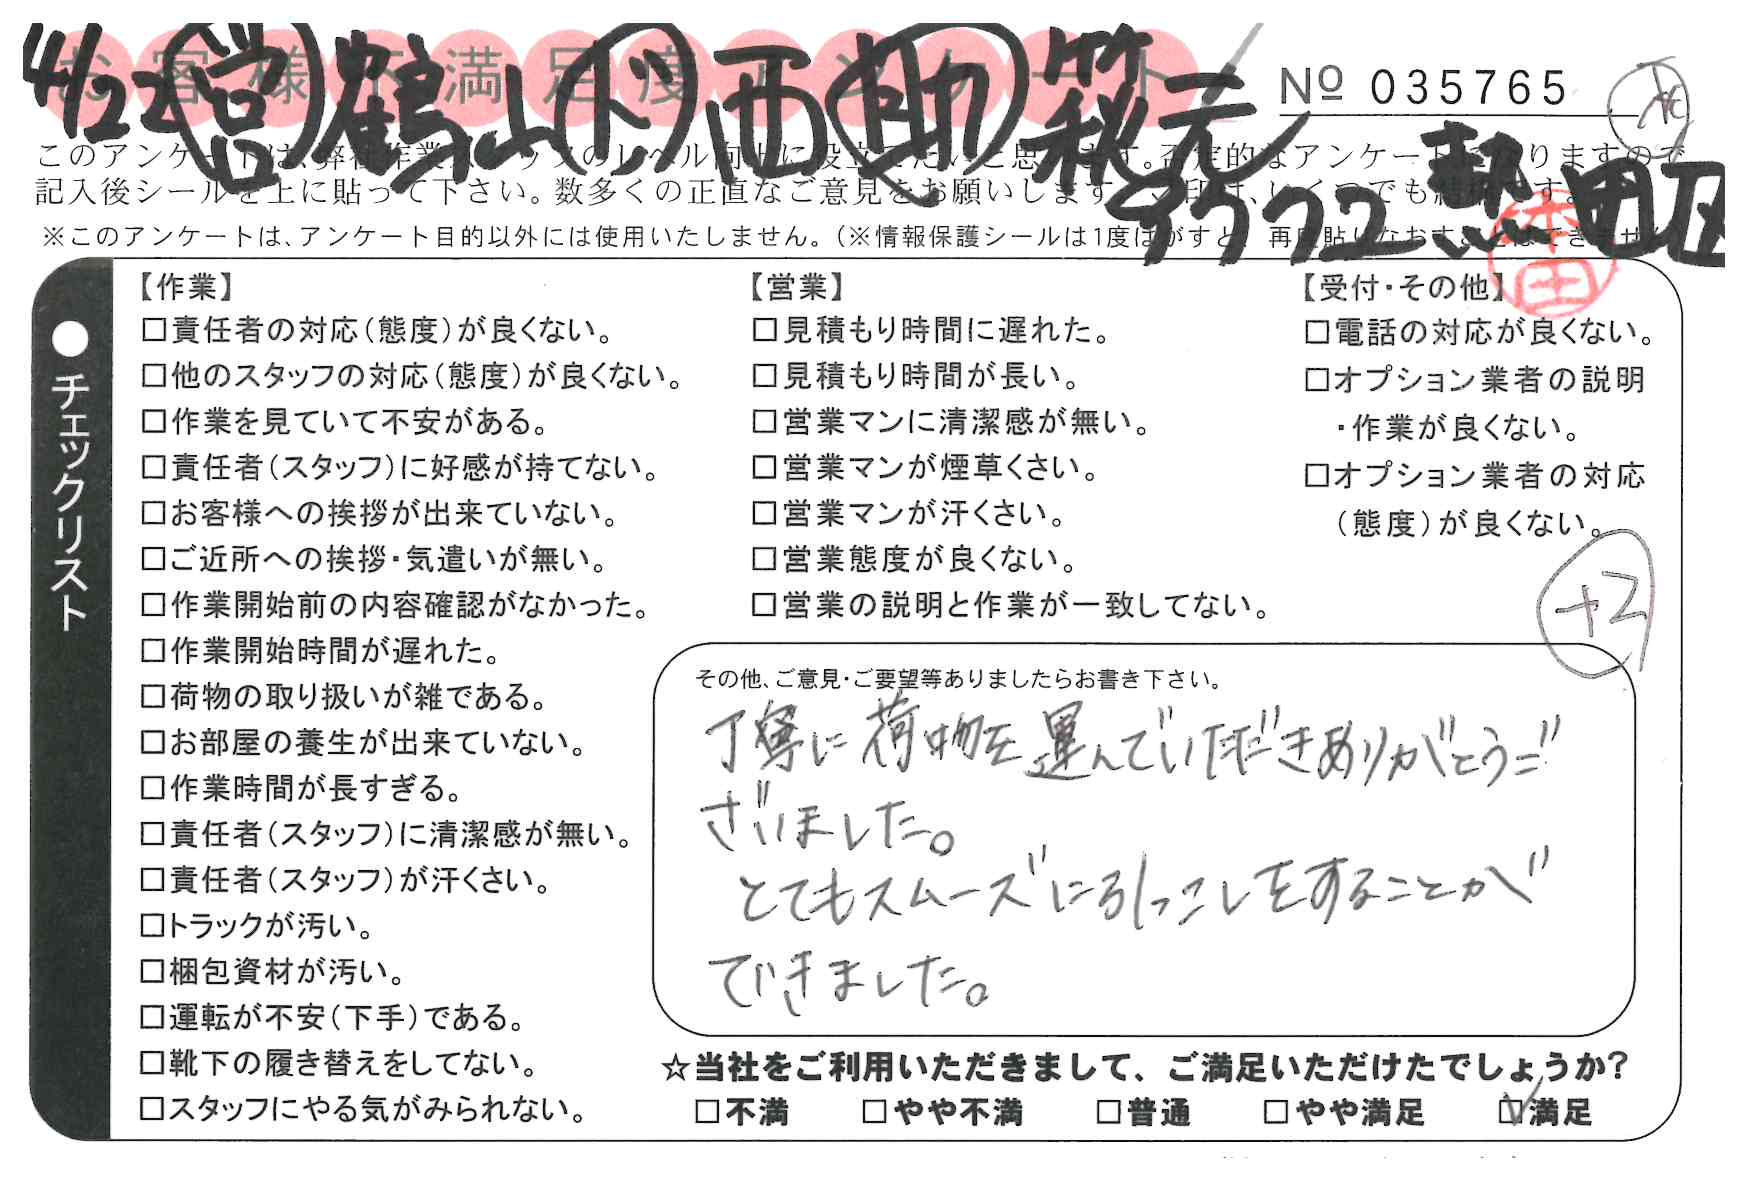 お客様不満足度アンケート
4/22 営 鶴山 ド 西 助 秋元
№ 035765
9772 熱田区
このアンケートは、弊社作業スタッフのレベル向上に役立てたいと思います。否定的なアンケートになりますので
記入後シールを上に貼って下さい。数多くの正直なご意見をお願いします。✓印は、いくつでも結構です。
※このアンケートは、アンケート目的以外には使用いたしません。(※情報保護シールは1度はがすと、再度貼りなおすことはできません
●チェックリスト
【作業】
□責任者の対応(態度)が良くない。
□他のスタッフの対応(態度)が良くない。
□作業を見ていて不安がある。
□責任者(スタッフ)に好感が持てない。
□お客様への挨拶が出来ていない。
□ご近所への挨拶・気遣いが無い。
□作業開始前の内容確認がなかった。
□作業開始時間が遅れた。
□荷物の取り扱いが雑である。
□お部屋の養生が出来ていない。
□作業時間が長すぎる。
□責任者(スタッフ)に清潔感が無い。
□責任者(スタッフ)が汗くさい。
□トラックが汚い。
□梱包資材が汚い。
□運転が不安(下手)である。
□靴下の履き替えをしてない。
□スタッフにやる気がみられない。
【営業】
□見積もり時間に遅れた。
□見積もり時間が長い。
□営業マンに清潔感が無い。
□営業マンが煙草くさい。
□営業マンが汗くさい。
□営業態度が良くない。
□営業の説明と作業が一致してない。
【受付・その他】
□電話の対応が良くない。
□オプション業者の説明
・作業が良くない。
□オプション業者の対応
(態度)が良くない。
+2
その他、ご意見・ご要望等ありましたらお書き下さい。
丁寧に荷物を運んでいただきありがとうご
ざいました。
とてもスムーズに引っこしをすることが
できました。
☆当社をご利用いただきまして、ご満足いただけたでしょうか?
□不満 □やや不満 □普通 □やや満足 ☑満足